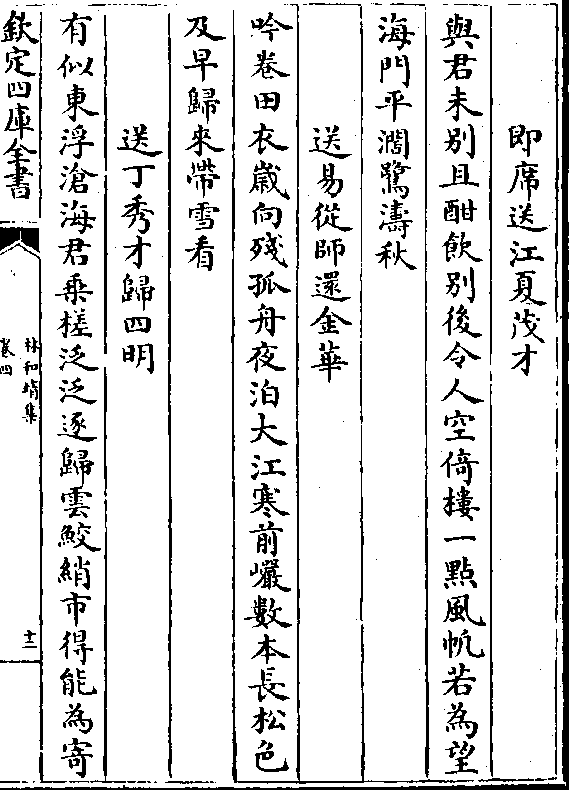 即席送江夏茂才
與君未别且酣飲别後令人空倚樓一點風帆若為望
海門平濶鷺濤秋
送易從師還金華
吟卷田衣嵗向殘孤舟夜泊大江寒前巖數本長松色
及早歸來帶雪看
送丁秀才歸四明
有似東浮滄海君乗槎泛泛逐歸雲鮫綃市得能為寄
欽定四庫全書
林和靖集
卷四
十三